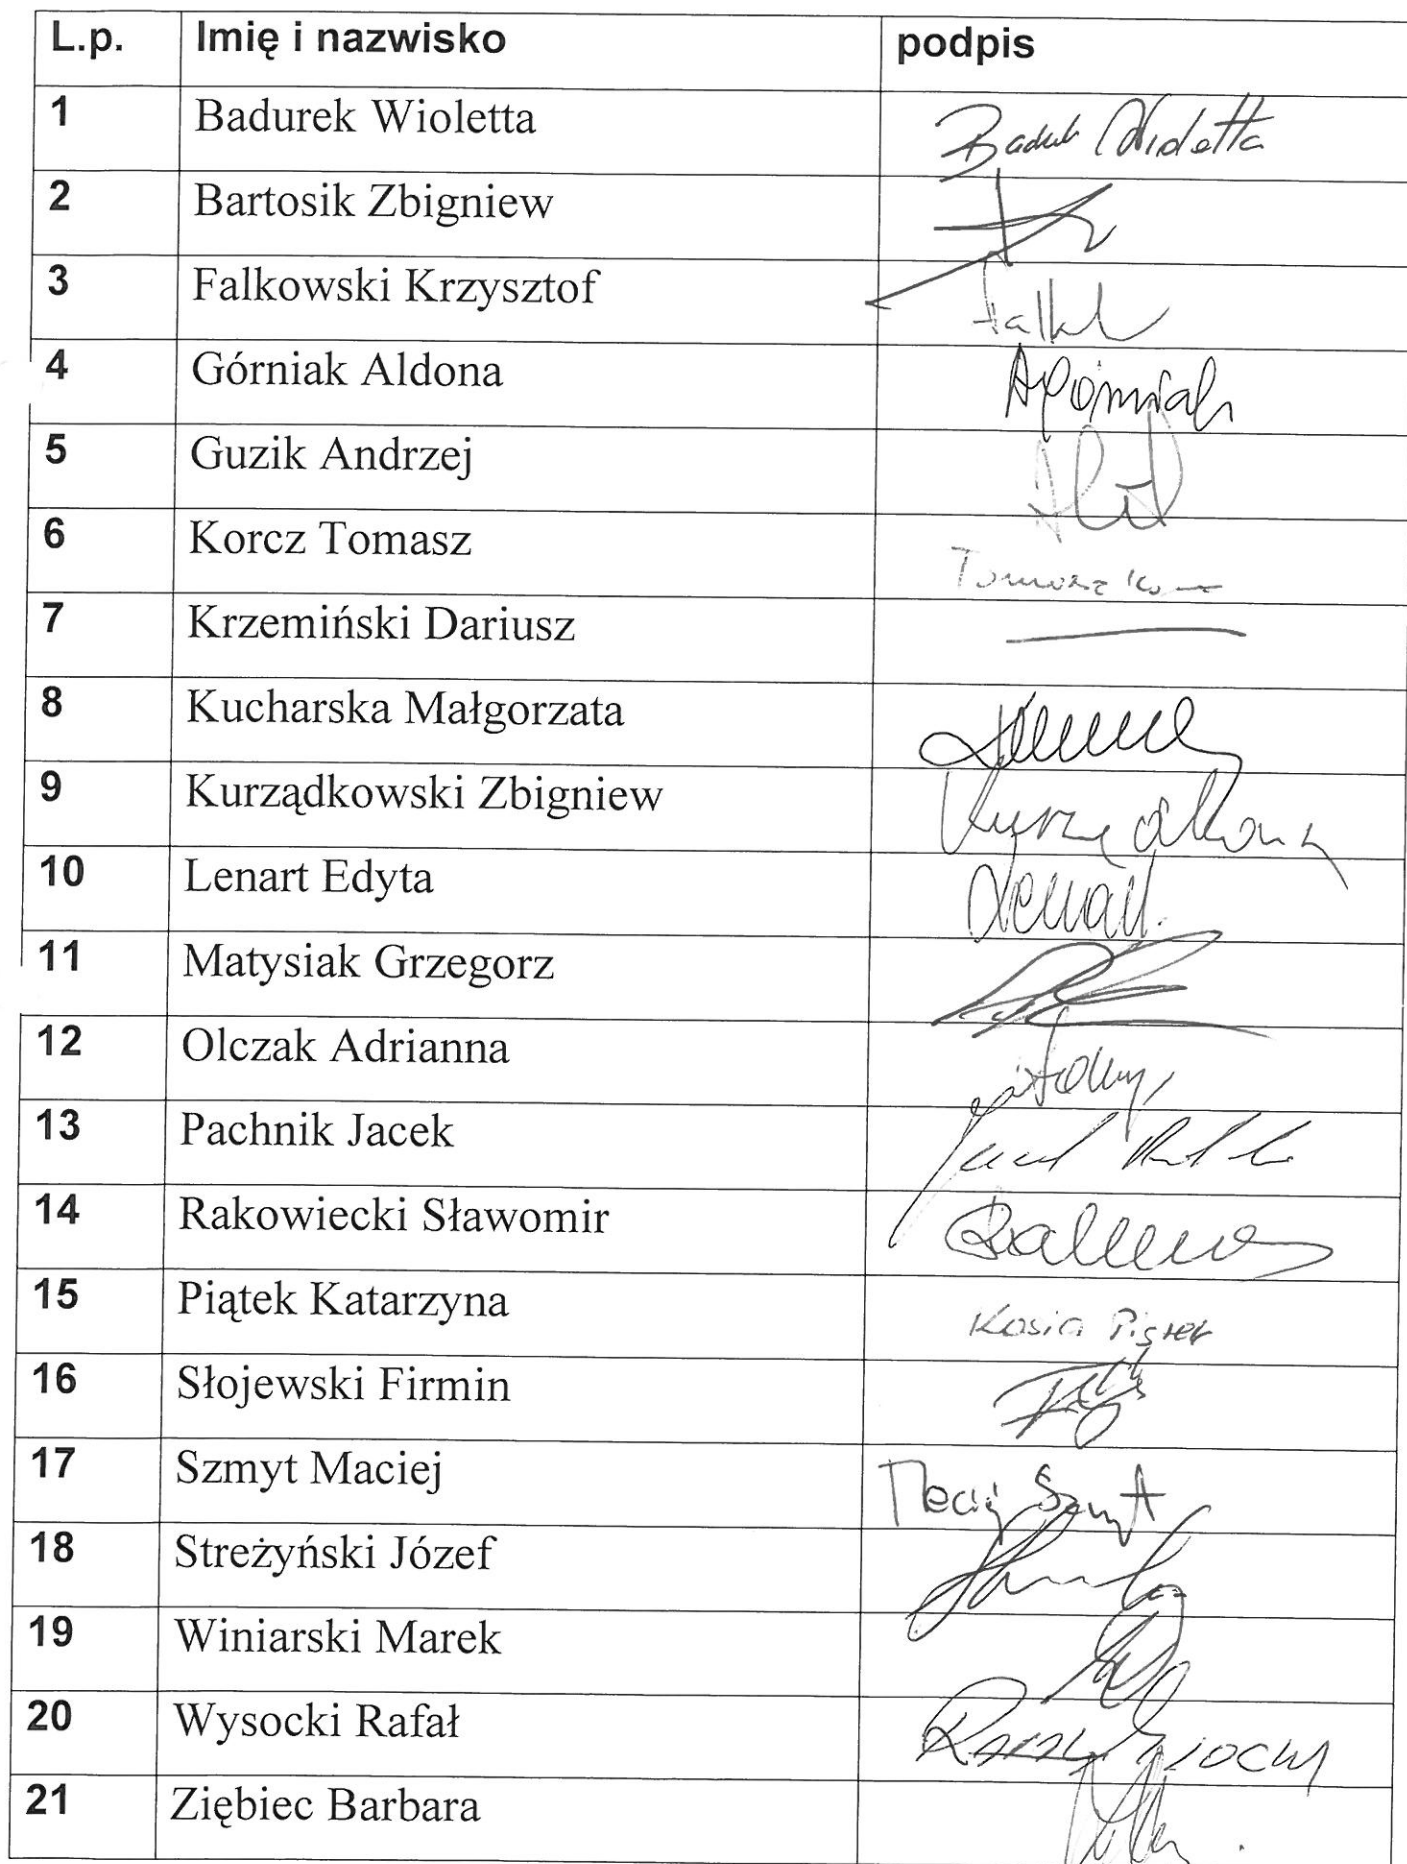 L.p. Imię i nazwisko podpis
1 Badurek Wioletta
2 Bartosik Zbigniew
3 Falkowski Krzysztof
4 Górniak Aldona
5 Guzik Andrzej
6 Korcz Tomasz
7 Krzemiński Dariusz
8 Kucharska Małgorzata
9 Kurządkowski Zbigniew
10 Lenart Edyta
11 Matysiak Grzegorz
12 Olczak Adrianna
13 Pachnik Jacek
14 Rakowiecki Sławomir
15 Piątek Katarzyna Kasia Piątek
16 Słojewski Firmin
17 Szmyt Maciej Maciej Szmyt
18 Streżyński Józef
19 Winiarski Marek
20 Wysocki Rafał
21 Ziębiec Barbara